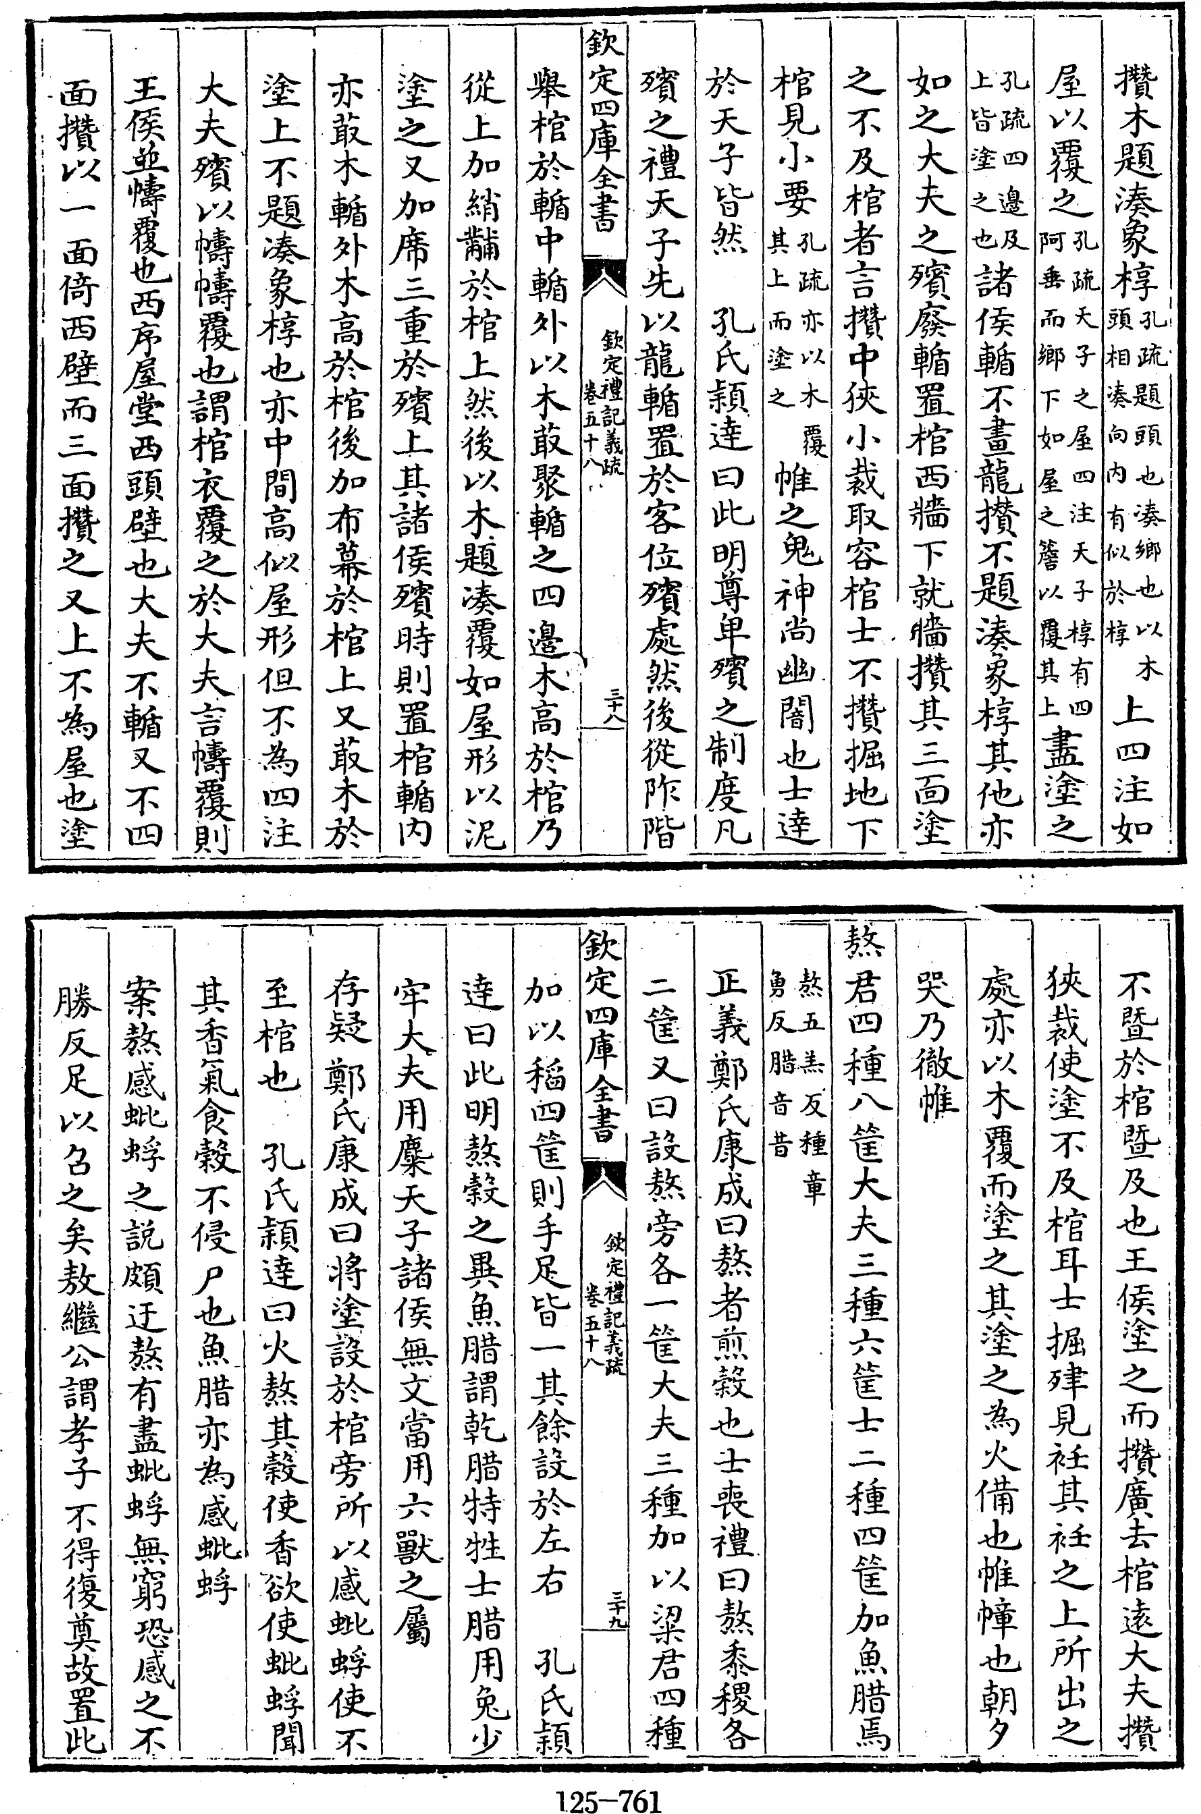 攢木題湊象椁孔疏題頭也湊鄉也以木頭相湊向内有似於椁上四注如
屋以覆之孔疏天子之屋四注天子椁有四阿垂而鄉下如屋之簷以覆其上盡塗之
孔疏四邊及上皆塗之也諸侯輴不畫龍攢不題湊象椁其他亦
如之大夫之殯廢輴置棺西牆下就牆攢其三面塗
之不及棺者言攢中狹小裁取容棺士不攢掘地下
棺見小要孔疏亦以木覆其上而塗之帷之鬼神尚幽闇也士達
於天子皆然　孔氏穎達曰此明尊卑殯之制度凡
殯之禮天子先以龍輴置於客位殯處然後從阼階
欽定四庫全書　欽定禮記義疏卷五十八　三十八
舉棺於輴中輴外以木菆聚輴之四邊木高於棺乃
從上加綃黼於棺上然後以木題湊覆如屋形以泥
塗之又加席三重於殯上其諸侯殯時則置棺輴内
亦菆木輴外木高於棺後加布幕於棺上又菆木於
塗上不題湊象椁也亦中間高似屋形但不為四注
大夫殯以幬幬覆也謂棺衣覆之於大夫言幬覆則
王侯並幬覆也西序屋堂西頭壁也大夫不輴又不四
面攢以一面倚西壁而三面攢之又上不為屋也塗
不暨於棺暨及也王侯塗之而攢廣去棺遠大夫攢
狹裁使塗不及棺耳士掘肂見衽其衽之上所出之
處亦以木覆而塗之其塗之為火備也帷幛也朝夕
哭乃徹帷
熬君四種八筐大夫三種六筐士二種四筐加魚腊焉
熬五羔反種章勇反腊音昔
正義鄭氏康成曰熬者煎榖也士喪禮曰熬黍稷各
二筐又曰設熬旁各一筐大夫三種加以粱君四種
欽定四庫全書　欽定禮記義疏卷五十八　三十九
加以稻四筐則手足皆一其餘設於左右　孔氏穎
達曰此明熬榖之異魚腊謂乾腊特牲士腊用兔少
牢大夫用麋天子諸侯無文當用六獸之屬
存疑鄭氏康成曰將塗設於棺旁所以惑蚍蜉使不
至棺也　孔氏穎達曰火熬其榖使香欲使蚍蜉聞
其香氣食榖不侵尸也魚腊亦為惑蚍蜉
案熬惑蚍蜉之説頗迂熬有盡蚍蜉無窮恐惑之不
勝反足以召之矣敖繼公謂孝子不得復奠故置此
125-761